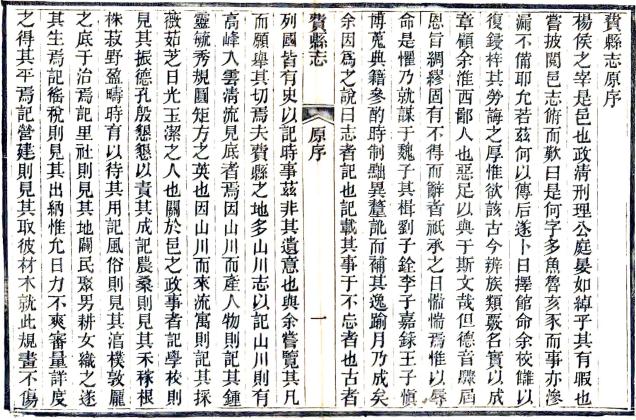 費縣志原序
楊侯之宰是邑也政清刑理公庭晏如綽乎其有暇也
嘗披閱邑志俯而歎曰是何字多魚魯亥豕而事亦滲
漏不備耶允若茲何以傳后遂卜日擇館命余校讎以
復鋟梓其勞誨之厚惟欲該古今辨族類覈名實以成
章顧余淮西鄙人也惡足以與于斯文哉但德音驟屆
恩旨綢繆固有不得而辭者祇承之日惴惴焉惟以辱
命是懼乃就謀于魏子其楫劉子銓李子嘉錄王子愼
博蒐典籍參酌時制黜異釐訛而補其逸踰月乃成矣
余因爲之說曰志者記也記載其事于不忘者也古者
費縣志
原序
一
列國皆有史以記時事茲非其遺意也與余嘗覽其凡
而願舉其切焉夫費縣之地多山川志以記山川則有
高峰入雲清流見底者焉因山川而產人物則記其鍾
靈毓秀規圓矩方之英也因山川而來流寓則記其採
薇茹芝日光玉潔之人也關於邑之政事者記學校則
見其振德孔殷懇懇以責其成記農桑則見其禾稼根
株菽野盈疇時育以待其用記風俗則見其渞樸敦龐
之底于治焉記里社則見其地闢民聚男耕女織之遂
其生焉記徭稅則見其出納惟允日力不爽審量詳度
之得其平焉記營建則見其取彼材木就此規畫不傷